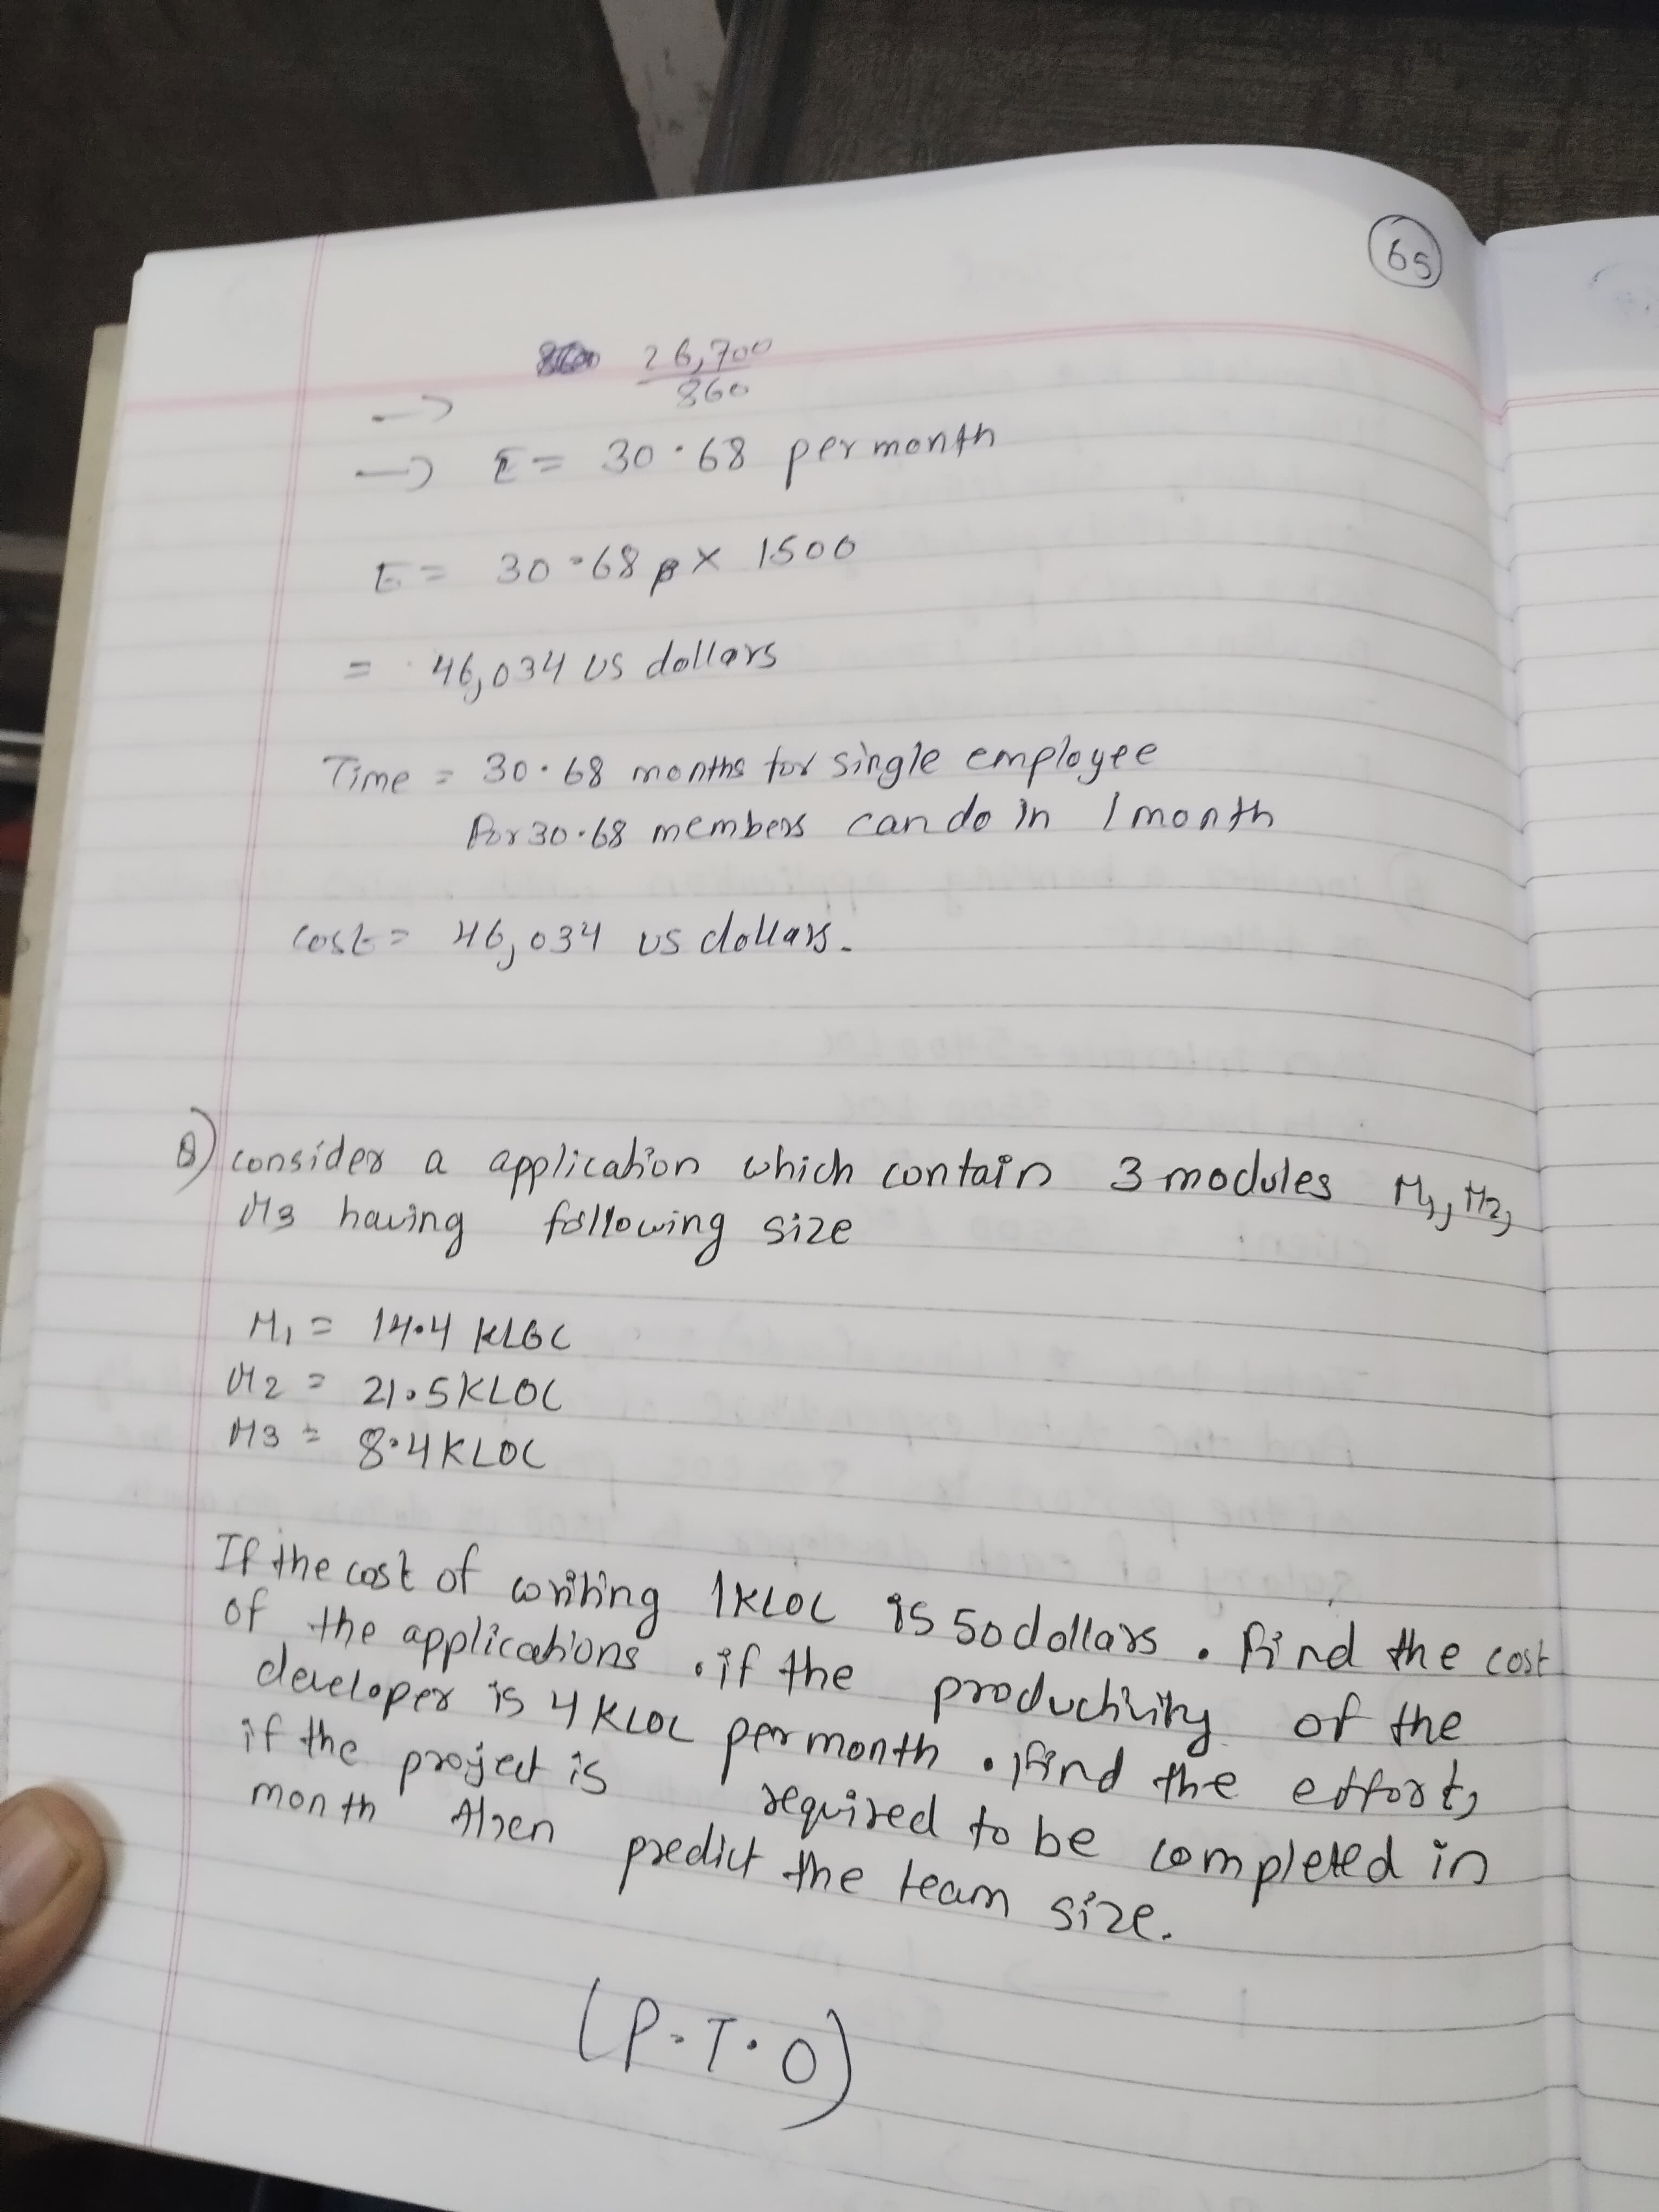 65
26,700
860
→
→ E = 30.68 per month
E = 30.68 × 1500
= 46,034 US dollars
Time = 30.68 months for single employee
For 30.68 members can do in 1 month
cost = 46,034 US dollars.
Q) consider a application which contain 3 modules M1, M2,
M3 having following size
M1 = 14.4 KLOC
M2 = 21.5 KLOC
M3 = 8.4 KLOC
If the cost of writing 1KLOC is 50 dollars. Find the cost
of the applications. if the productivity of the
developer is 4 KLOC per month. Find the effort,
if the project is required to be completed in
month then predict the team size.
(P.T.O)